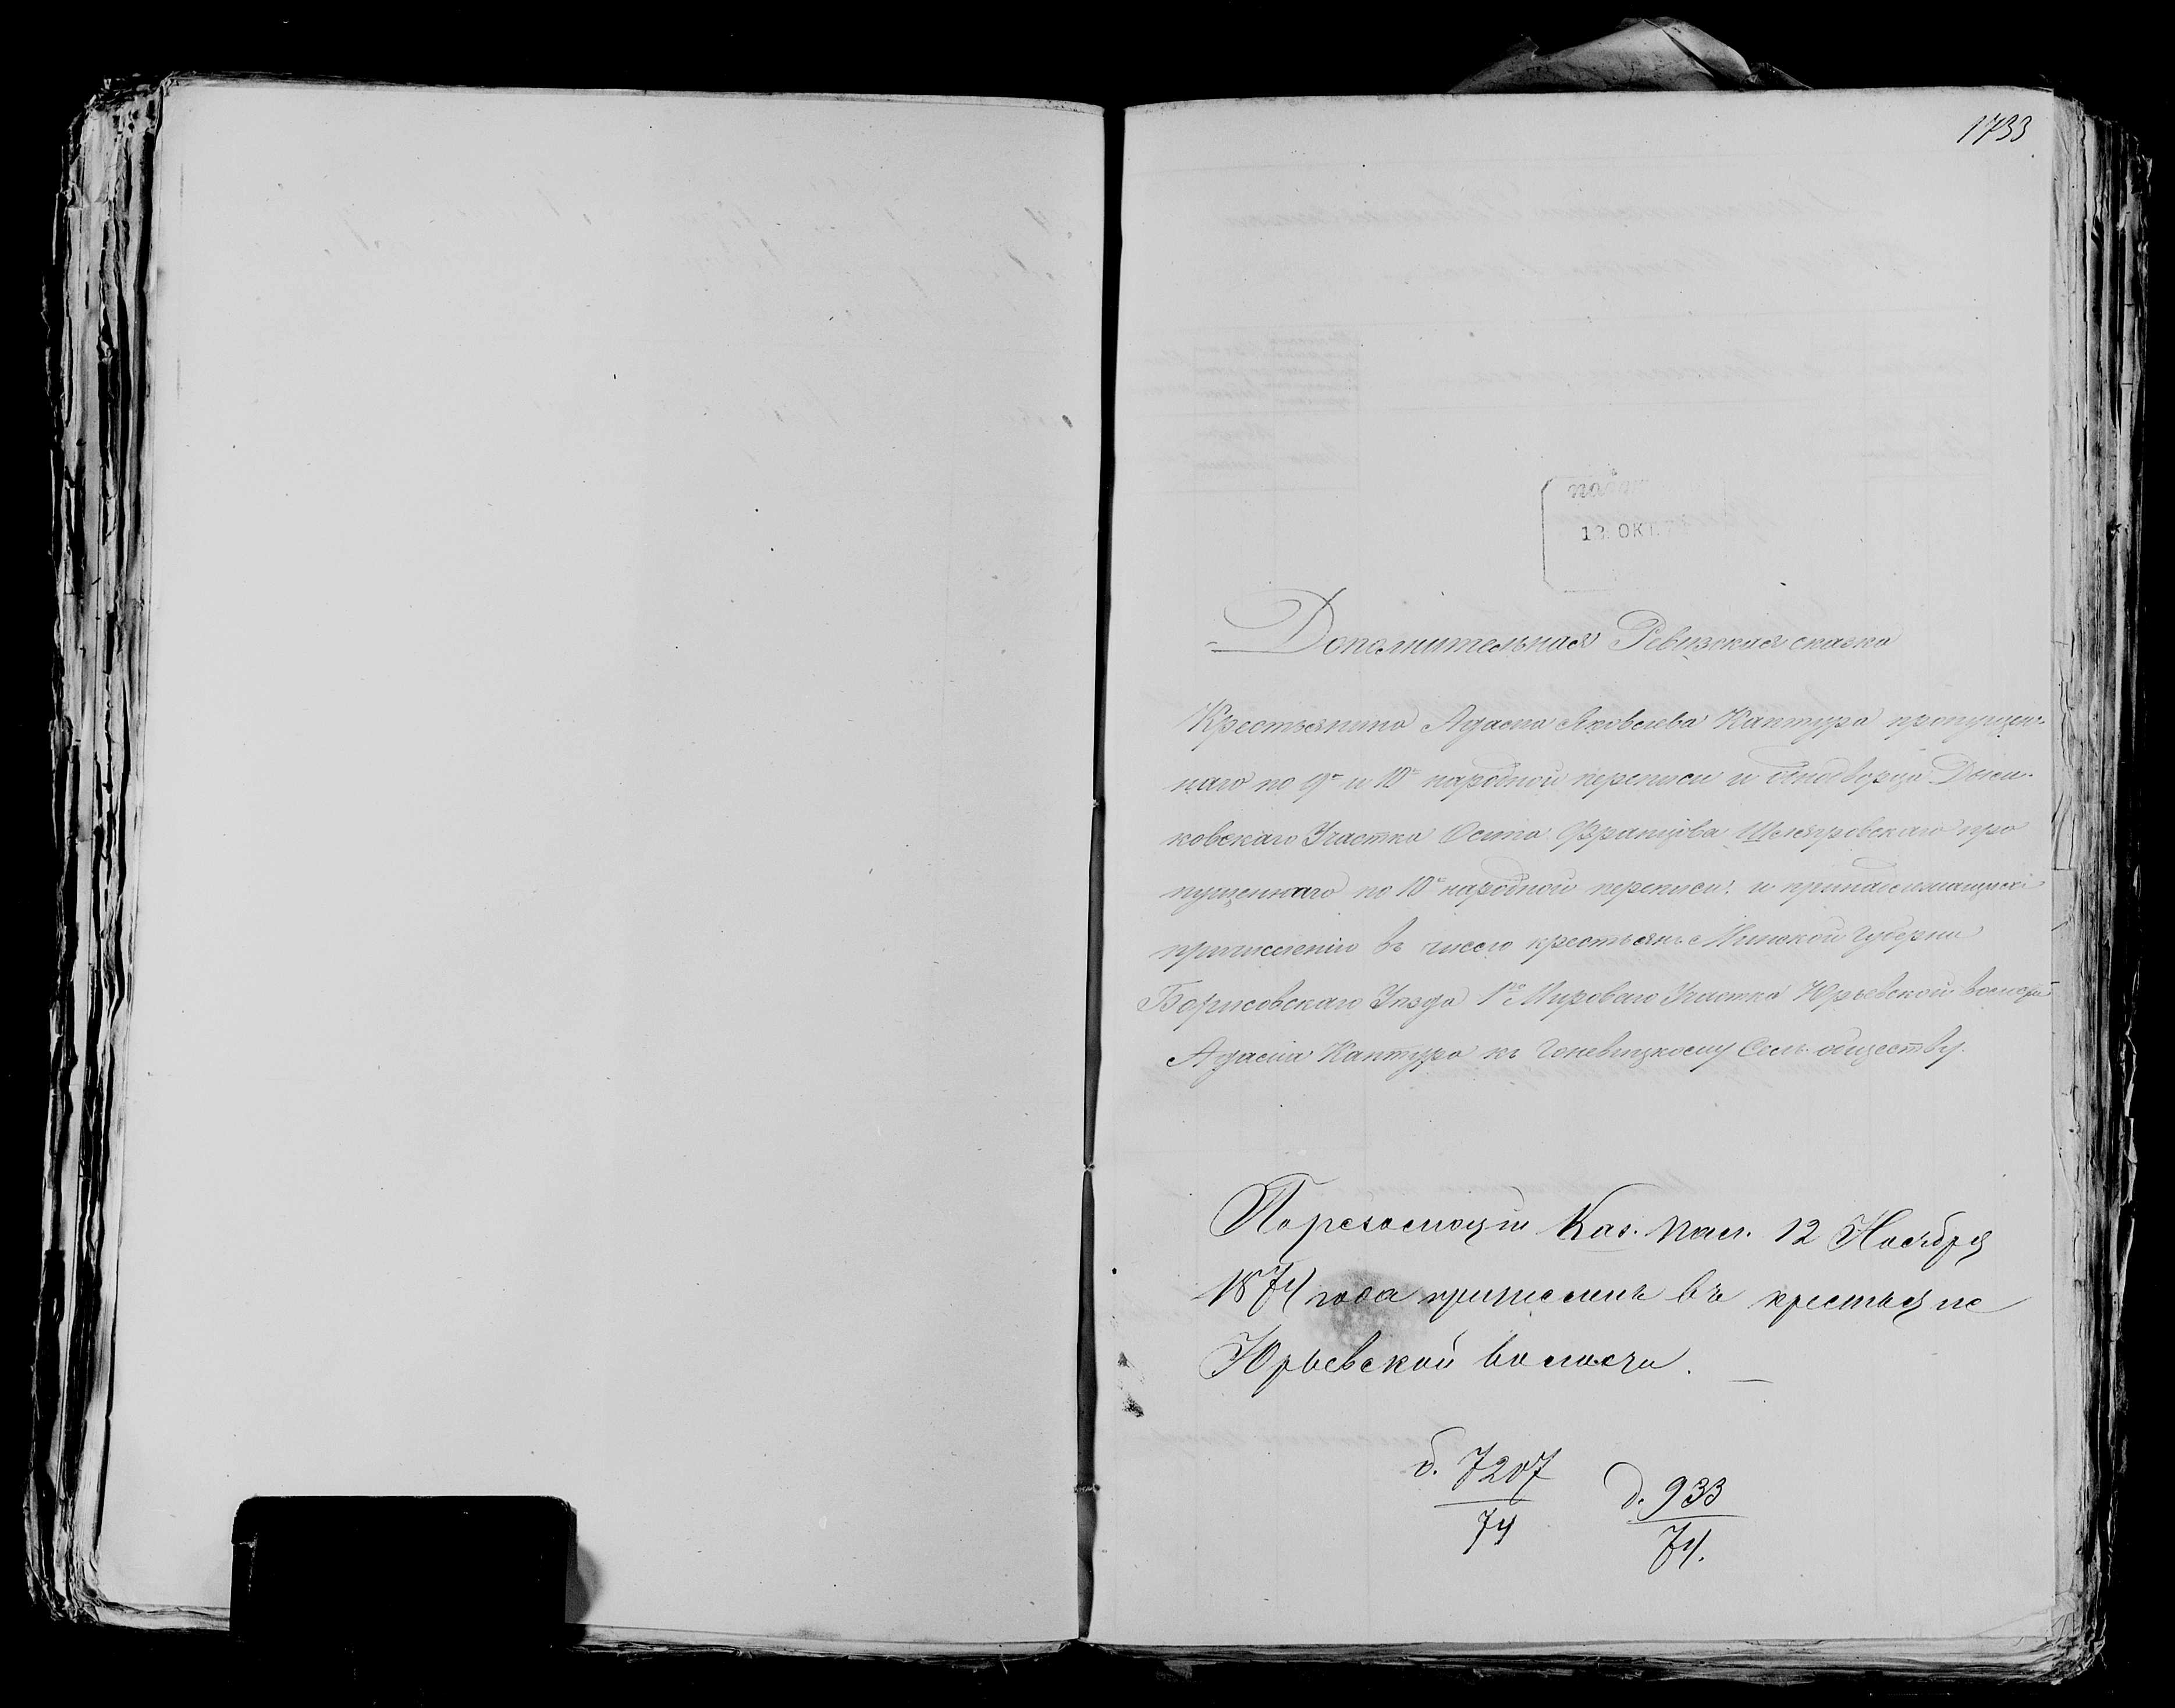 1733
13 ОКТ.
Дополнительная Ревизская сказка
Крестьянина Адама Яковлева Кантура пропущен-
наго по 9й и 10й народной переписи и
ковскаго Участка Осипа Францова про
пущеннаго по 10й народной переписи и
причислению въ число крестьянъ Минской Губернии
Борисовскаго Уезда 1го Мироваго Участка Юрьевской волости
Адама Кантура къ Сель. обществу.
По резолюции Каз. Пал. 12 Ноября
1874 года причисленъ въ крестьяне
Юрьевской волости.
б. 7207
74
д. 933
74.